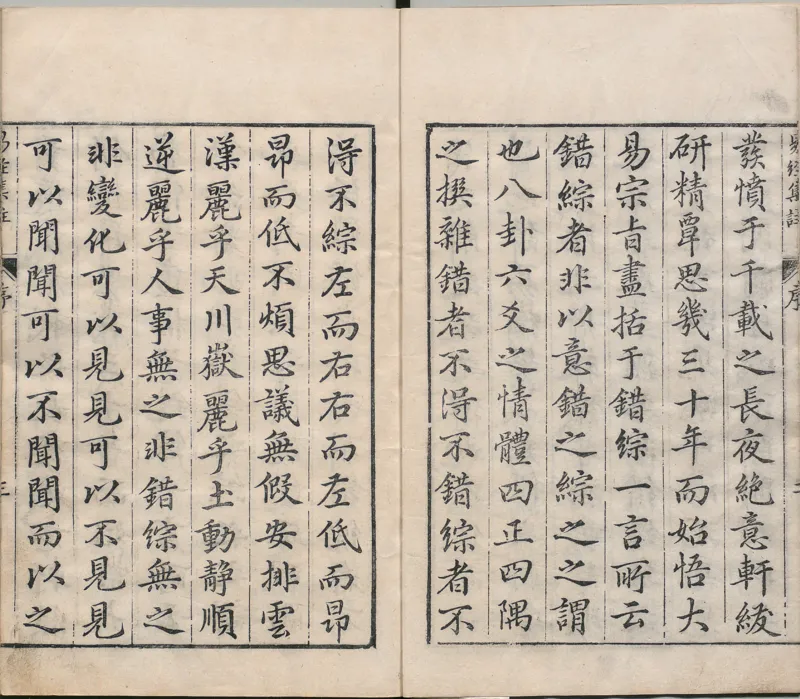 易經集註
序
發憤于千載之長夜絶意軒紱
研精覃思幾三十年而始悟大
易宗旨盡括于錯綜一言所云
錯綜者非以意錯之綜之之謂
也八卦六爻之情體四正四隅
之撰雜錯者不得不錯綜者不
得不綜左而右右而左低而昻
昻而低不煩思議無假安排雲
漢麗乎天川嶽麗乎土動静順
逆麗乎人事無之非錯綜無之
非變化可以見見可以不見見
可以聞聞可以不聞聞而以之
易經集註
序
三